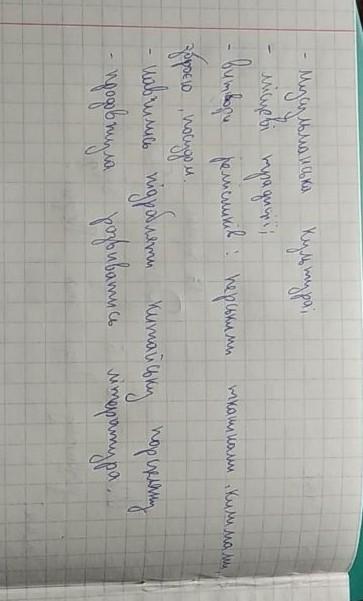 - Мусульманська культура;
- місцеві традиції;
- витвори ремісників: перськими тканинами, килимами,
зброєю, посудом.
- Навчились підробляти китайську порцеляну
- продовжила розвиватись література.